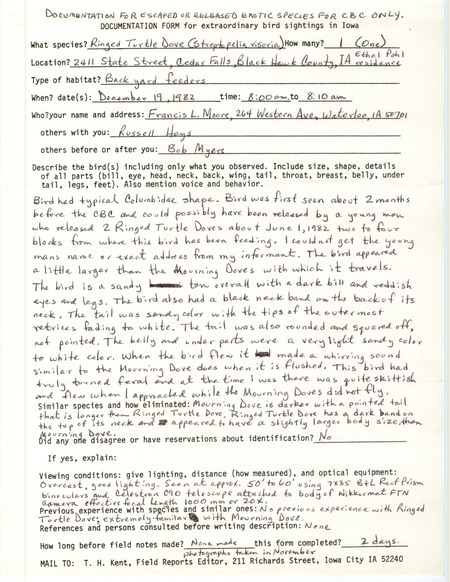 DOCUMENTATION FOR ESCAPED OR RELEASED EXOTIC SPECIES FOR CBC ONLY.
DOCUMENTATION FORM for extraordinary bird sightings in Iowa
What species? Ringed Turtle Dove (Streptopelia risoria) How many? 1 (One)
Ethel Pohl
Location? 2411 State Street, Cedar Falls, Black Hawk County, IA residence
Type of habitat? Back yard feeders
When? date(s): December 19, 1982 time: 8:00am to 8:10am
Who? your name and address: Francis L. Moore, 264 Western Ave, Waterloo, IA 50701
others with you: Russell Hays
others before or after you: Bob Myers
Describe the bird(s) including only what you observed. Include size, shape, details
of all parts (bill, eye, head, neck, back, wing, tail, throat, breast, belly, under
tail, legs, feet). Also mention voice and behavior.
Bird had typical Columbidae shape. Bird was first seen about 2 months
before the CBC and could possibly have been released by a young man
who released 2 Ringed Turtle Doves about June 1, 1982 two to four
blocks from where this bird has been feeding. I could not get the young
mans name or exact address from my informant. The bird appeared
a little larger than the Mourning Doves with which it travels.
The bird is a sandy tan overall with a dark bill and reddish
eyes and legs. The bird also had a black neck band on the back of its
neck. The tail was sandy color with the tips of the outermost
retrices fading to white. The tail was also rounded and squared off,
not pointed. The belly and under parts were a very light sandy color
to white color. When the bird flew it made a whirring sound
similar to the Mourning Dove does when it is flushed. This bird had
truly turned feral and at the time I was there was quite skittish
and flew when I approached while the Mourning Doves did not fly.
Similar species and how eliminated: Mourning Dove is darker with a pointed tail
that is longer than Ringed Turtle Dove. Ringed Turtle Dove has a dark band on
the top of its neck and appeared to have a slightly larger body size than
Mourning Dove.
Did any one disagree or have reservations about identification? No
If yes, explain:
Viewing conditions: give lighting, distance (how measured), and optical equipment:
Overcast, good lighting. Seen at approx. 50' to 60' using 7x35 B+L Roof Prism
binoculars and Celestron C90 telescope attached to body of Nikkormat FTN
camera, effective focal length 1000 mm or 20X.
Previous experience with species and similar ones: No previous experience with Ringed
Turtle Dove; extremely familar with Mourning Dove.
References and persons consulted before writing description: None
How long before field notes made? None made this form completed? 2 days.
photographs taken in November
MAIL TO: T. H. Kent, Field Reports Editor, 211 Richards Street, Iowa City IA 52240